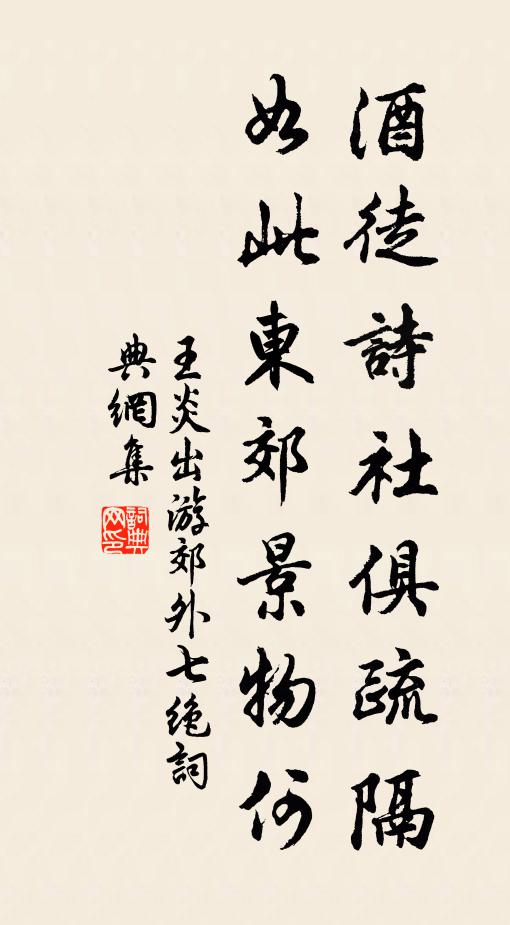 酒徒詩社俱疏隔
如此東郊景物何
王炎出游郊外七絶詞
典網集
詞典
网印